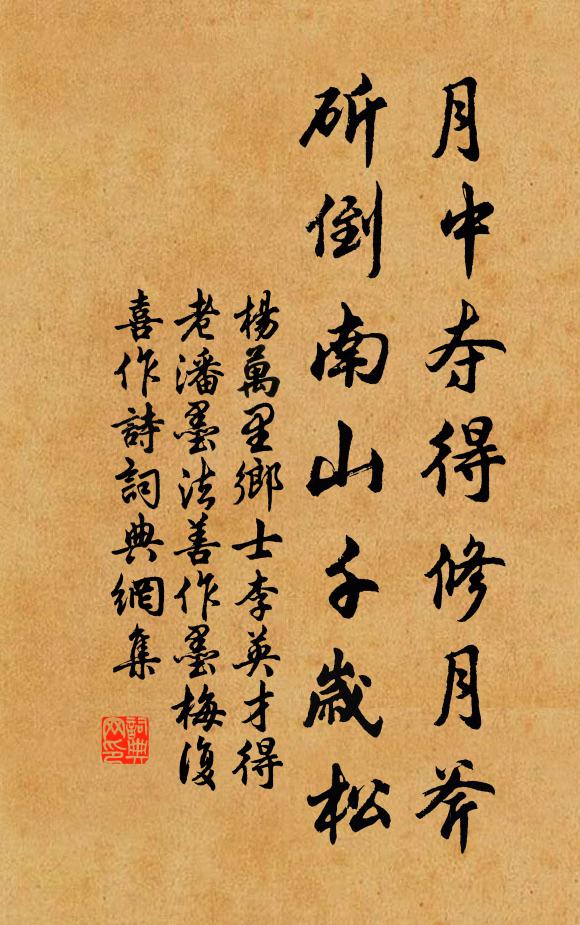 月中夺得修月斧
斫倒南山千歲松
楊萬里鄉士李英才得
老潘墨法善作墨梅復
喜作詩詞典網集
詞典網印